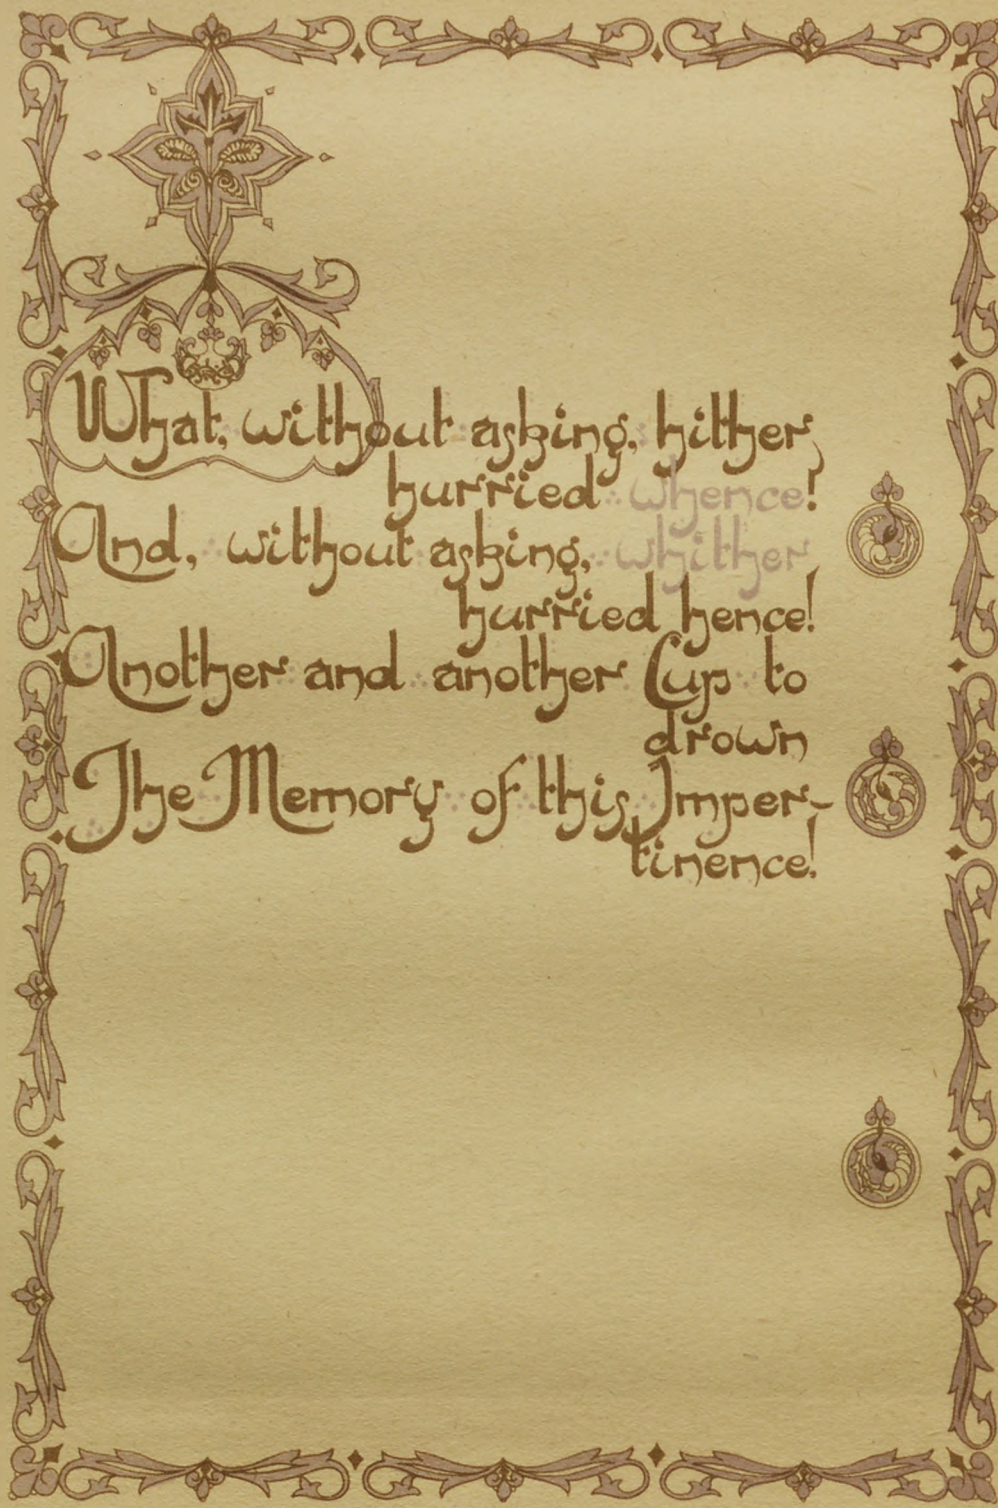 What, without asking, hither
hurried whence!
And, without asking, whither
hurried hence!
Another and another Cup to
drown
The Memory of this Imper-
tinence!